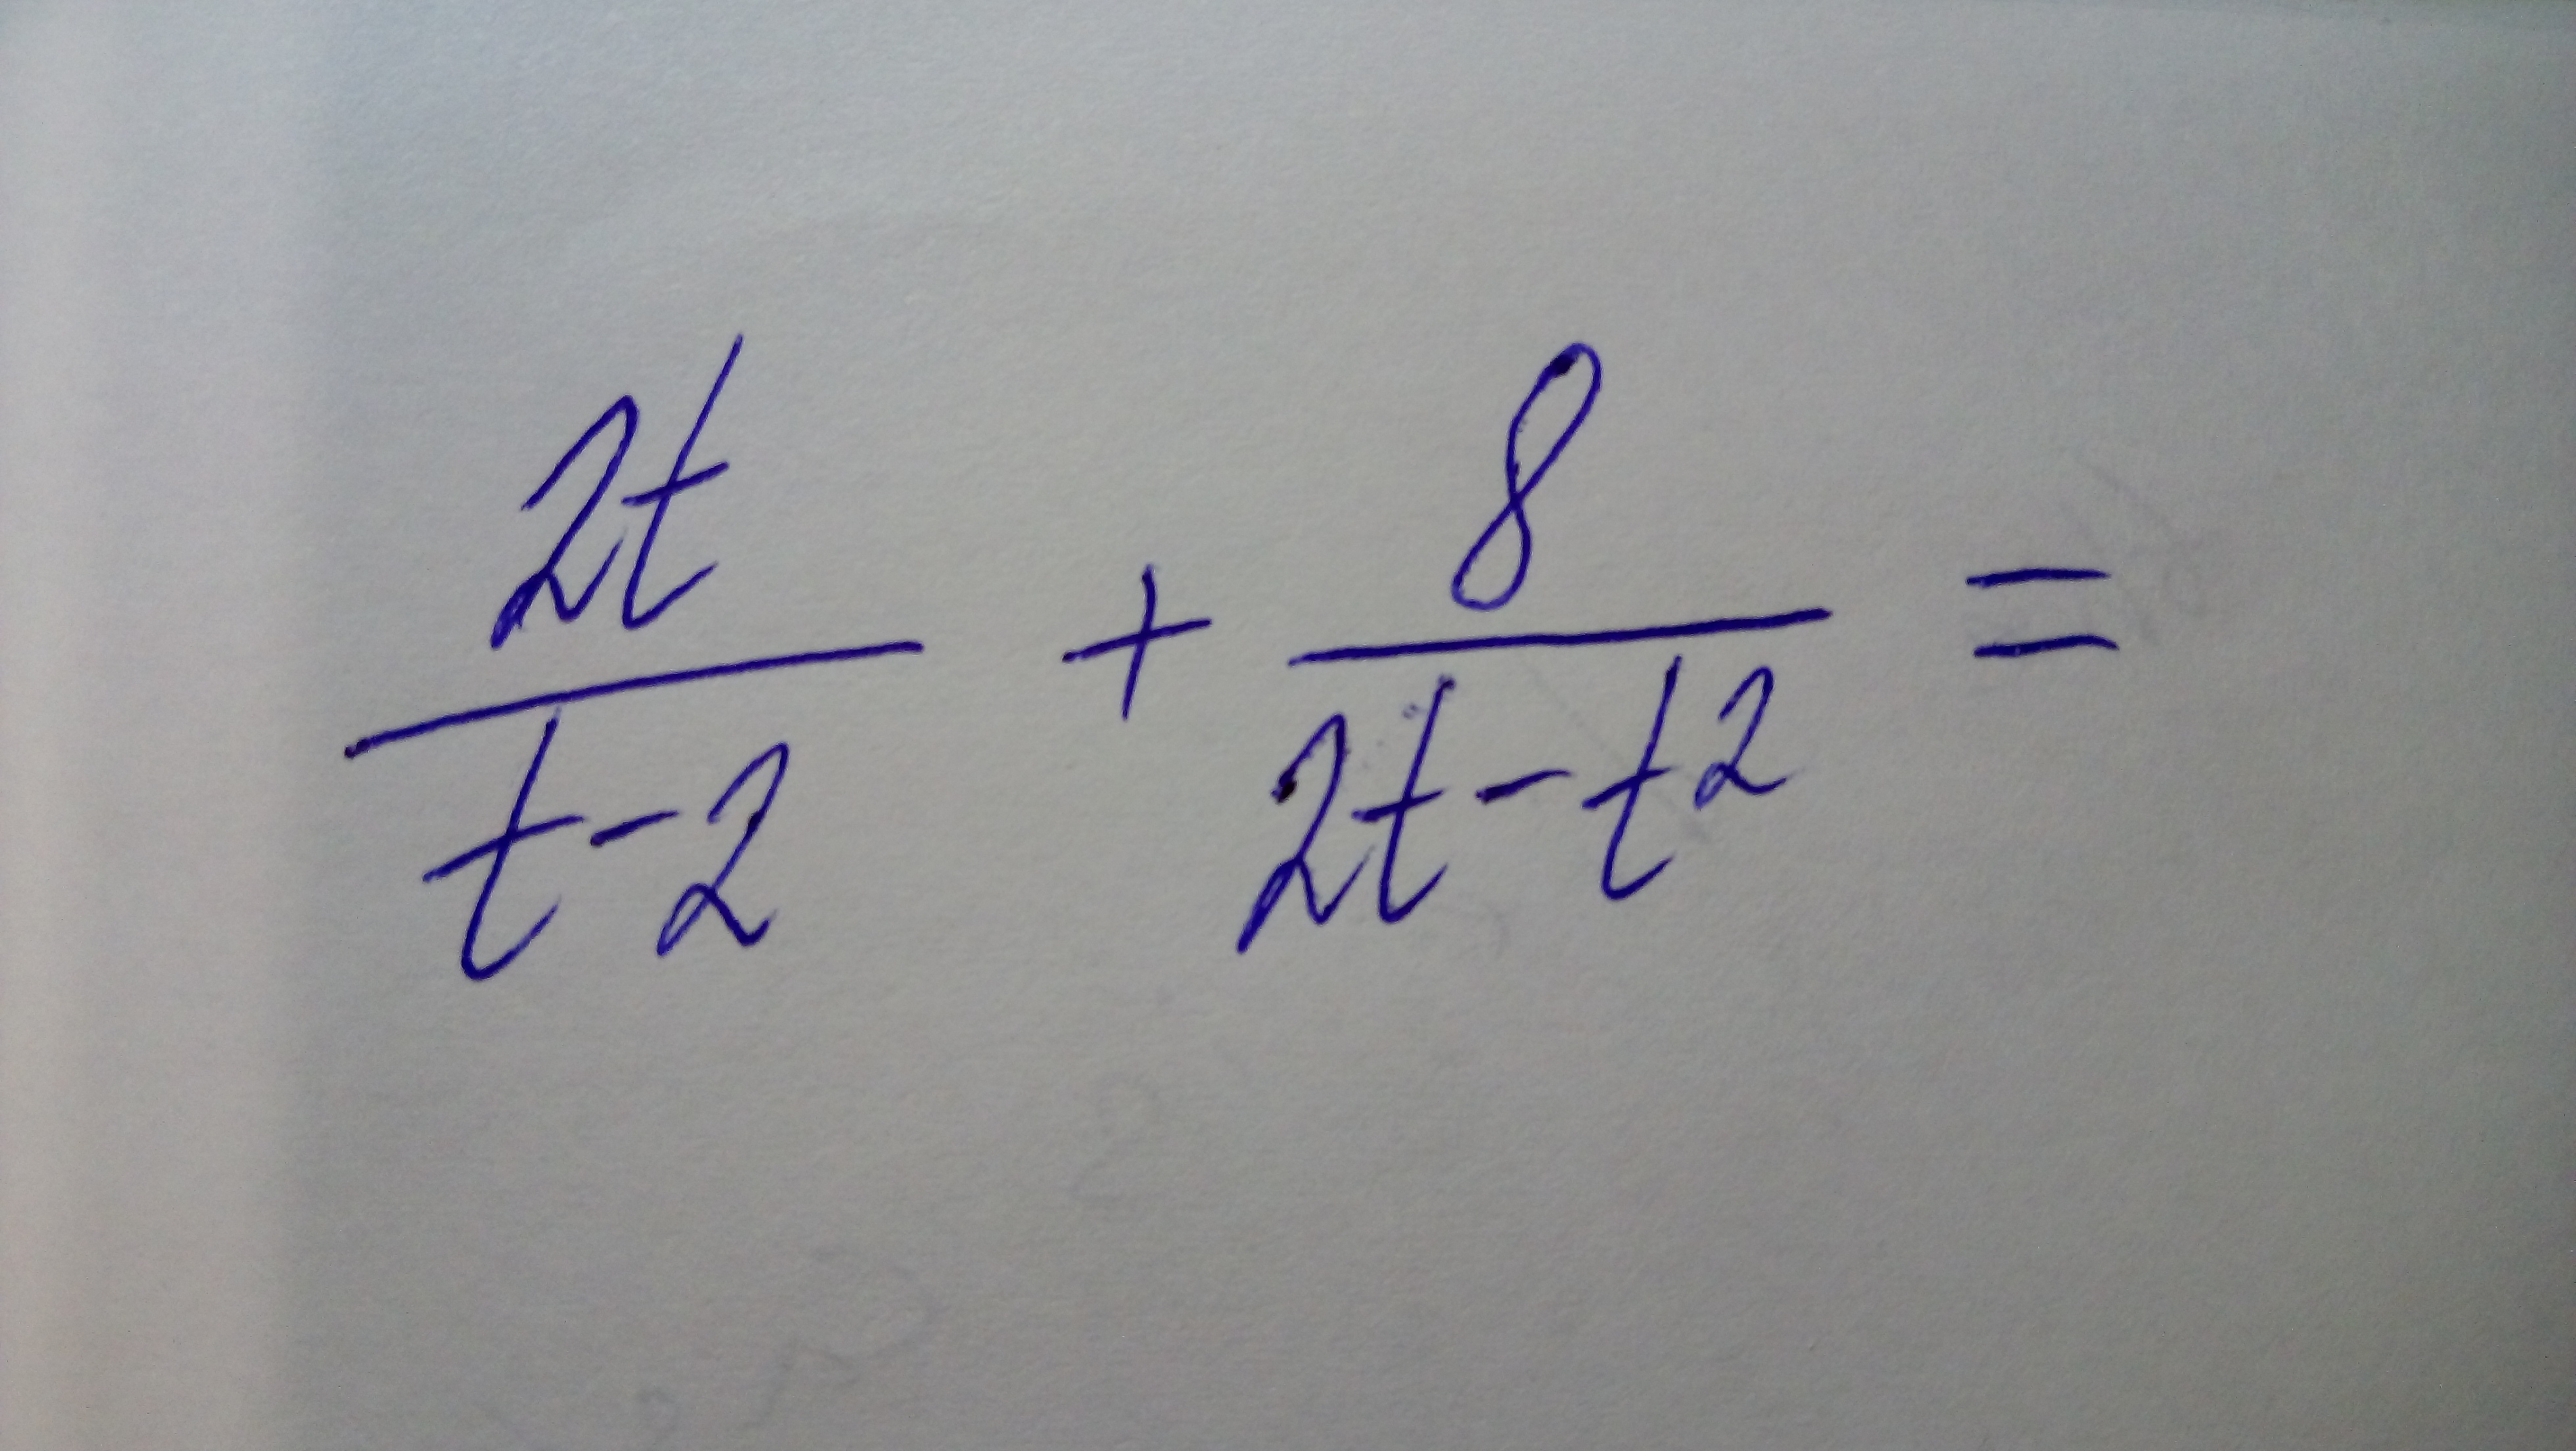 2t/(t-2) + 8/(2t-t²) =